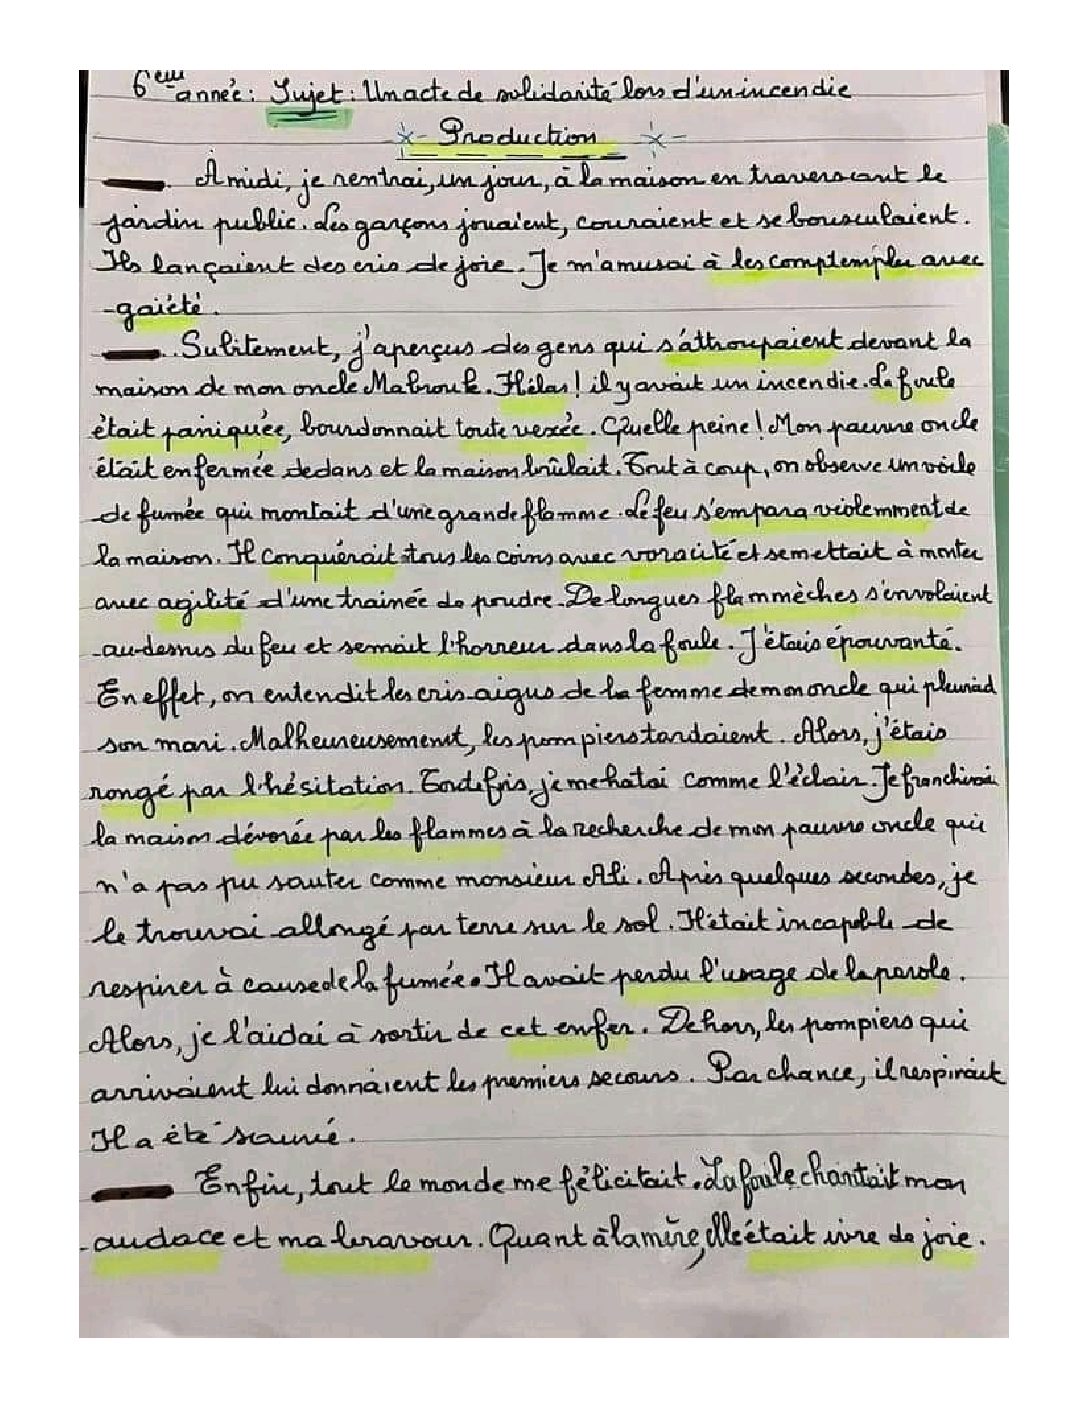 6ème année : Sujet : Un acte de solidarité lors d'un incendie
Production
À midi, je rentrai, un jour, à la maison en traversant le
jardin public. Les garçons jouaient, couraient et se bousculaient.
Ils lançaient des cris de joie. Je m'amusai à les comptempler avec
gaiété.
Subitement, j'aperçus des gens qui s'attroupaient devant la
maison de mon oncle Mabrouk. Hélas ! il y avait un incendie. La foule
était paniquée, bourdonnait toute vexée. Quelle peine ! Mon pauvre oncle
était enfermée dedans et la maison brûlait. Tout à coup, on observe un voile
de fumée qui montait d'une grande flamme. Le feu s'empara violemment de
la maison. Il conquérait tous les coins avec voracité et se mettait à monter
avec agilité d'une trainée de poudre. De longues flammèches s'envolaient
au-dessus du feu et semait l'horreur dans la foule. J'étais épouvanté.
En effet, on entendit les cris aigus de la femme de mon oncle qui
son mari. Malheureusement, les pompiers tardaient. Alors, j'étais
rongé par l'hésitation. Toutefois, je me hatai comme l'éclair. Je
la maison dévorée par les flammes à la recherche de mon pauvre oncle qui
n'a pas pu sauter comme monsieur Ali. Après quelques secondes, je
le trouvai allongé par terre sur le sol. Il était incapable de
respirer à cause de la fumée. Il avait perdu l'usage de la parole.
Alors, je l'aidai à sortir de cet enfer. Dehors, les pompiers qui
arrivaient lui donnaient les premiers secours. Par chance, il respirait
Il a été sauvé.
Enfin, tout le monde me félicitait. La foule chantait mon
audace et ma bravour. Quant à la mère, elle était ivre de joie.